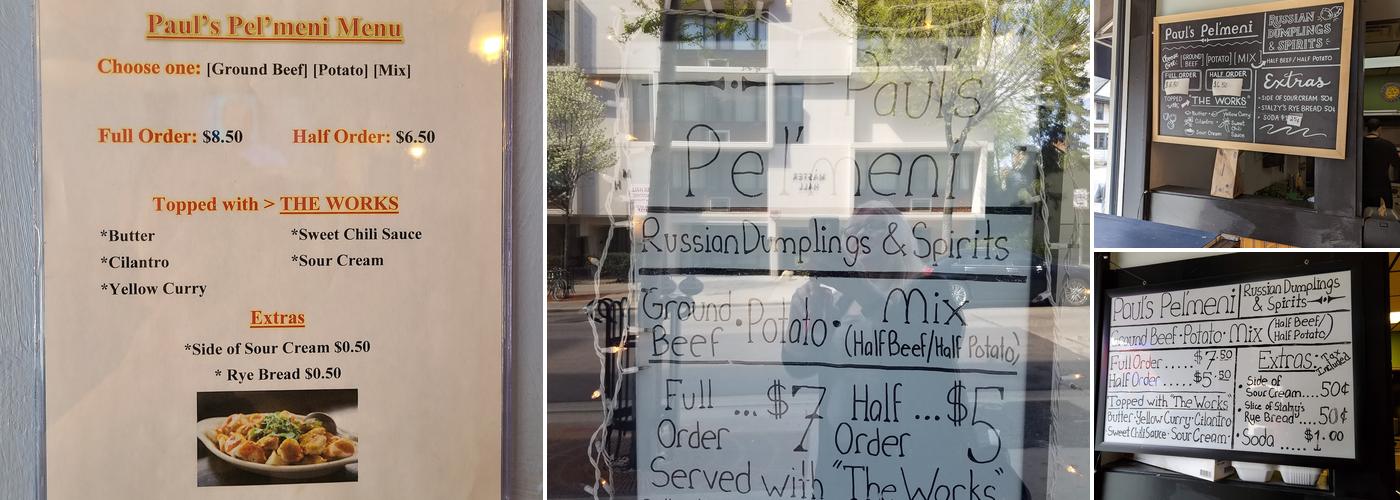 Paul's Pel'meni Menu
Choose one: [Ground Beef] [Potato] [Mix]
Full Order: $8.50 Half Order: $6.50
Topped with > THE WORKS
*Butter *Sweet Chili Sauce
*Cilantro *Sour Cream
*Yellow Curry
Extras
*Side of Sour Cream $0.50
* Rye Bread $0.50
Paul's
Pel'meni
Russian Dumplings & Spirits
Ground Beef · Potato · Mix (Half Beef/Half Potato)
Full Order ... $7 Half Order ... $5
Served with "The Works"
MASTER
HALL
Paul's Pel'meni
RUSSIAN
DUMPLINGS
& SPIRITS
CHOOSE ONE: [GROUND BEEF] [POTATO] [MIX]
HALF BEEF/HALF POTATO
FULL ORDER HALF ORDER
TOPPED with "THE WORKS"
Butter Yellow Curry
Cilantro Sweet Chili Sauce
Sour Cream
Extras
• SIDE OF SOUR CREAM 50¢
• STALZY'S RYE BREAD 50¢
• SODA
Paul's Pel'meni Russian Dumplings & Spirits
Ground Beef · Potato · Mix (Half Beef/Half Potato)
Full Order ..... $7.50
Half Order ..... $5.50
Topped with "The Works"
Butter · Yellow Curry · Cilantro
Sweet Chili Sauce · Sour Cream
Extras: Tax Included
• Side of Sour Cream .... 50¢
• Slice of Stalzy's Rye Bread .... 50¢
• Soda ..... $1.00